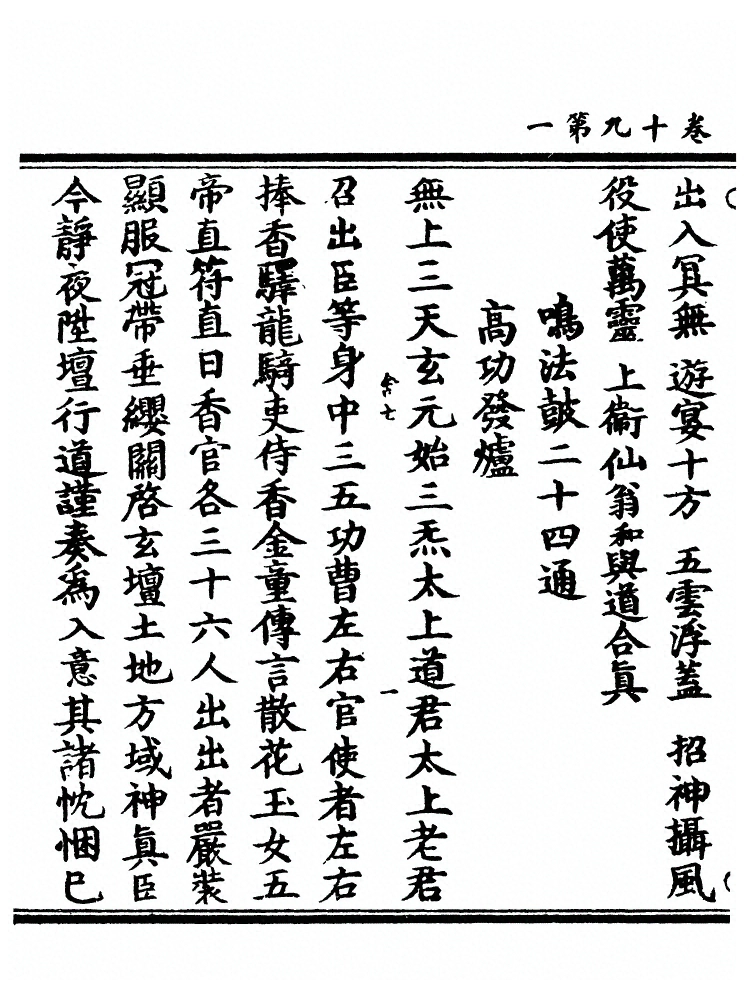 卷十九第一
出入冥無　遊宴十方　五雲浮蓋　招神攝風
役使萬靈　上衞仙翁和與道合眞
鳴法鼓二十四通
高功發爐
無上三天玄元始三炁太上道君太上老君
召出臣等身中三五功曹左右官使者左右
捧香驛龍騎吏侍香金童傳言散花玉女五
帝直符直日香官各三十六人出出者嚴裝
顯服冠帶垂纓關啓玄壇土地方域神眞臣
今靜夜陞壇行道謹奏爲入意其諸忱悃已